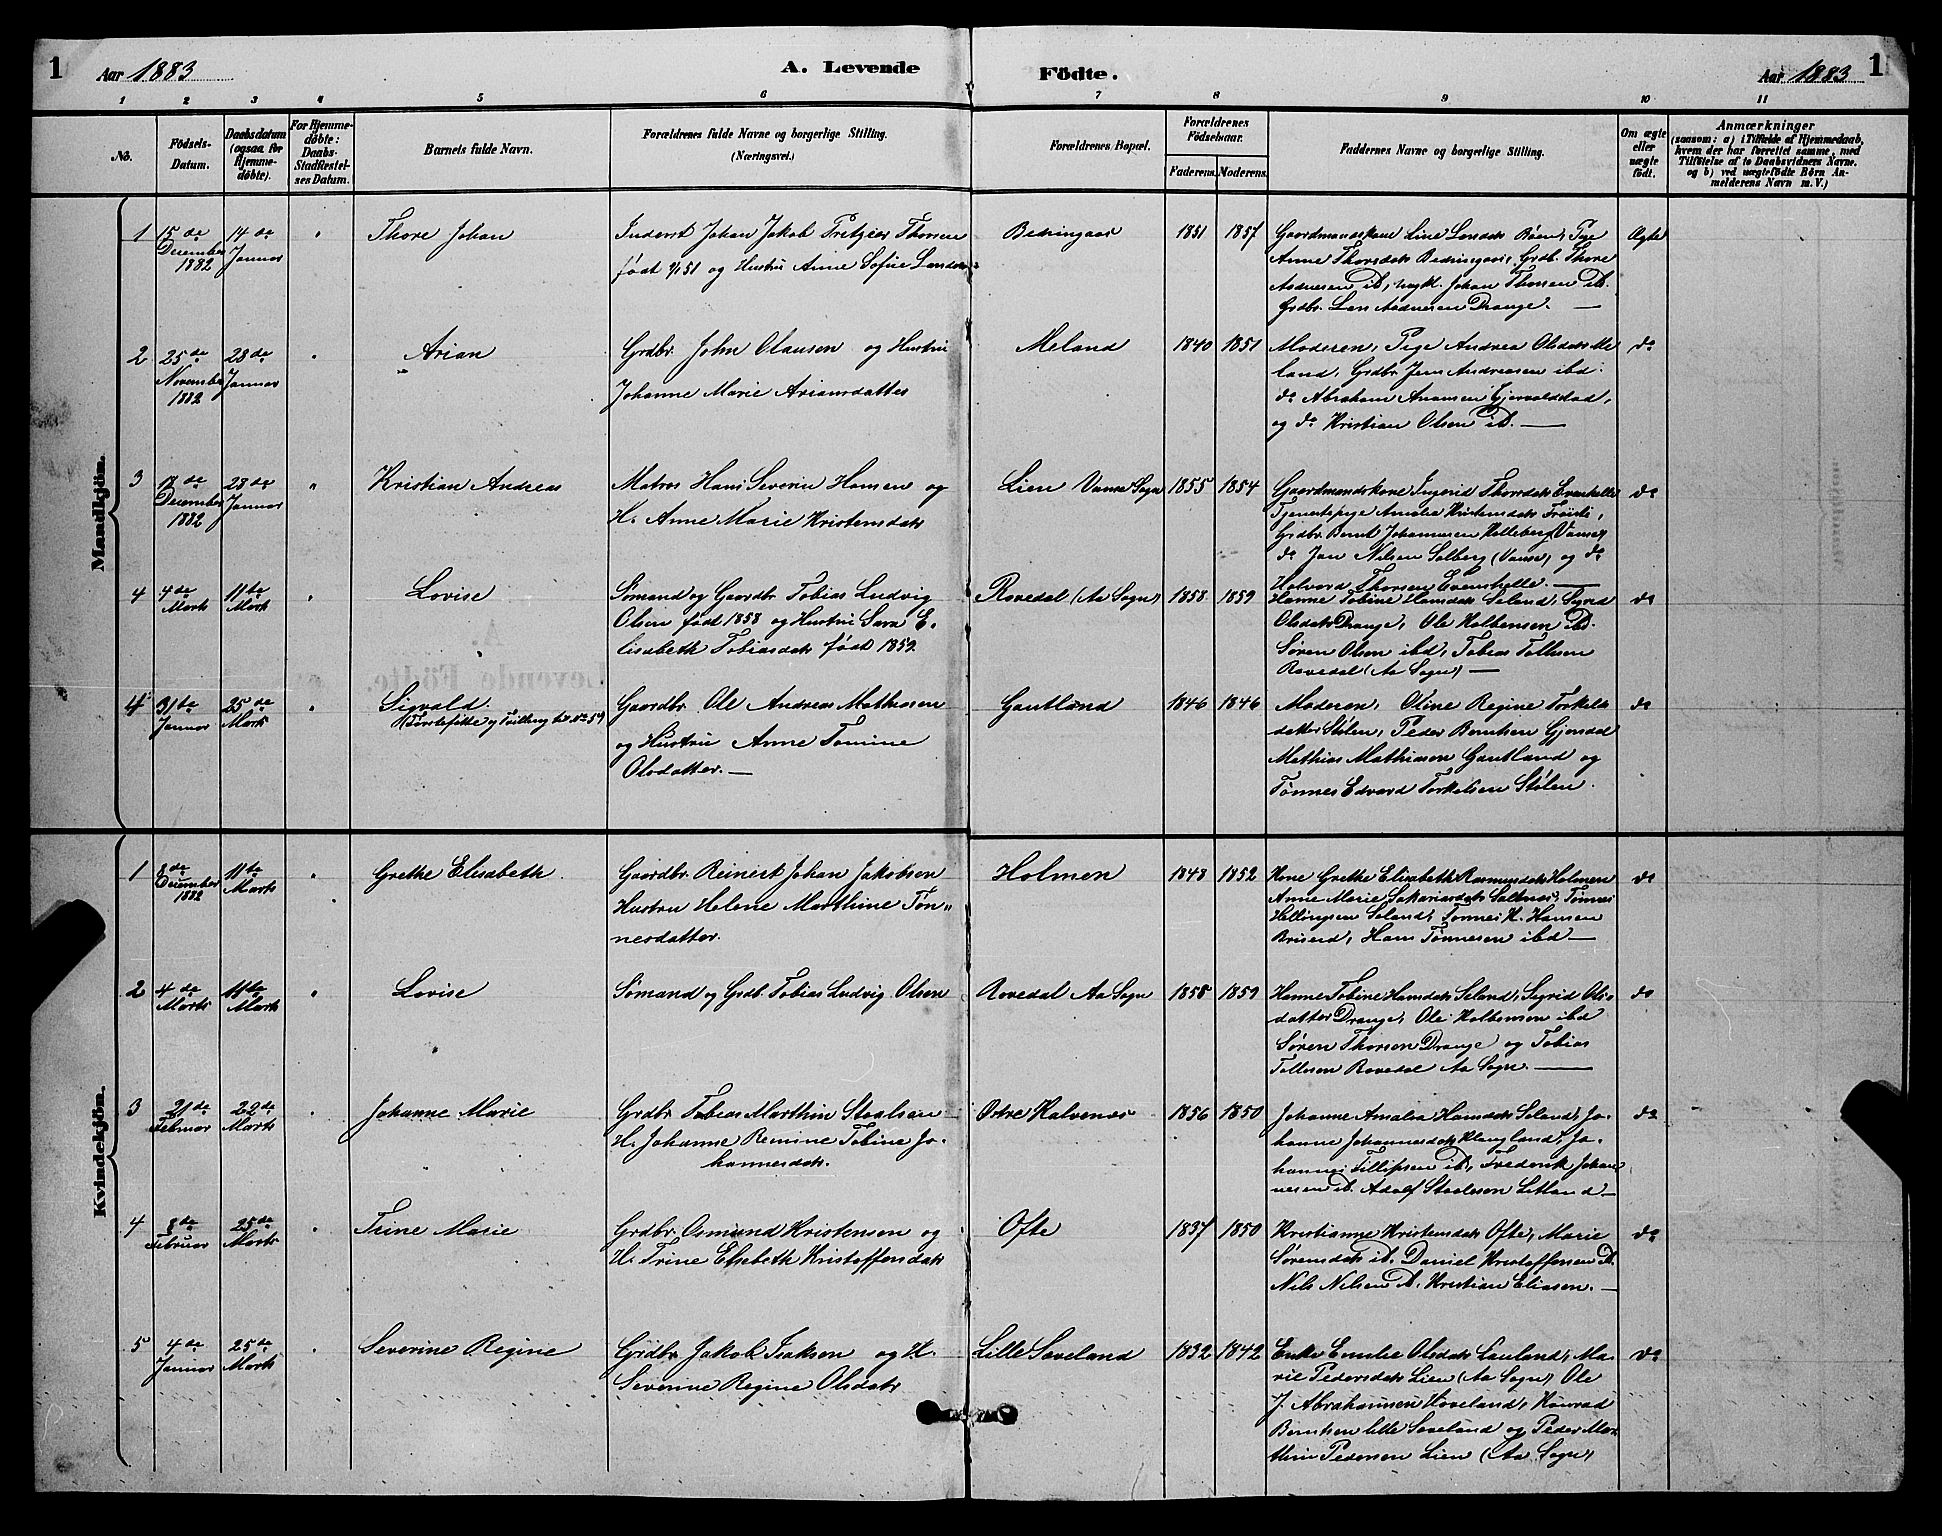 1 Aar 1883 A. Levende Födte. Aar 1883 1
1 2 3 4 5 6 7 8 9 10 11
No.
Födsels-
Datum.
Daabsdatum
(ogsaa for
Hjemme-
døbte).
For Hjemme-
døbte:
Daabs-
Stadfestel-
ses Datum.
Barnets fulde Navn.
Forældrenes fulde Navne og borgerlige Stilling.
(Næringsvei.)
Forældrenes Bopæl.
Forældrenes
Födselsaar.
Faderens. Moderens.
Faddernes Navne og borgerlige Stilling.
Om ægte
eller
uægte
födt.
Anmærkninger
(saasom: a) i Tilfælde af Hjemmedaab,
hvem der har forrettet samme, med
Tilföielse af to Daabsvidners Navne.
og b) ved uægtefödte Börn An-
melderens Navn m. V.)
Mandkjön.
1 15de December 1882 14de Januar " Thore Johan
Inderst Johan Jakob Fritzner Thorsen
født 9/1 51 og Hustru Anne Sofie
Bedringaas 1851 1857
Gaardmandskone Line Larsdatr Røen, Pige
Anne Thorsdatr Bedringaas, Grdb. Thore
Andersen ibd, ungk. Johan Thorsen ib.
Grdbr. Lars Andersen Drange. —
Ægte
2 25de November 1882 28de Januar " Arian
Grdbr. John Olausen og Hustru
Johanne Marie Ariansdatter
Meland 1840 1851
Moderen, Pige Andrea Olsdatr Me
land, Grdbr Jens Andreasen ibd.
do Abraham
og do Kristian Olsen ibd. —
do
3 17de December 1882 28de Januar " Kristian Andreas
Matros Hans Severin Hansen og
H. Anne Marie Kristensdatr
Lien Vanse Sogn 1855 1854
Gaardmandskone Ingerid Thorsdatr Evenhelle
Tjenestepige Amalia Kristensdatr
Grdbr. Bernt Johannesen Kolleberg (Vanse)
do Jan Nilsen Solberg (Vanse) og do
Halvord Thorsen Evenhelle. —
do
4 4de Marts 11te Marts " Lovise
Sømand og Gaardbr. Tobias Ludvig
Olsen født 1858 og Hustru Sara E-
lisabeth Tobiasdatr født 1859.
Rovedal (Aa Sogn) 1858 1859
Hanne Tobine Hansdatr Seland, Sigrid
Olsdatr Drange, Ole Kolbensen ibd.
Søren Olsen ibd, Tobias Tollesen
Rovedal (Aa Sogn) —
do
4 31te Januar 25de Marts " Sigvald.
(Førstefødte og Tvilling til No 5)
Gaardbr. Ole Andreas Mathiasen
og Hustru Anne Tomine
Olsdatter. —
Gautland 1846 1846
Moderen, Oline Regine Torkels
datter Stølen, Peder Berntsen Gjersdal
Mathias Mathiasen Gautland og
Tønnes Edvard Torkelsen Stølen.
do
Kvindekjön.
1 8de December 1882 11te Marts " Grethe Elisabeth.
Gaardbr. Reinert Johan Jakobsen
Hustru Helene Marthine Tøn-
nesdatter.
Holmen 1848 1852
Kone Grethe Elisabeth Rasmusdatr Holmen
Anne Marie Sakariasdatr Saltnes, Tønnes
Seland, Tønnes H. Hansen
Briseid, Hans Tønnesen ibd —
do
2 4de Marts 11te Marts " Lovise
Sømand og Grdb. Tobias Ludvig Olsen
Rovedal Aa Sogn 1858 1859
Hanne Tobine Hansdatr Seland, Sigrid Ols-
datter Drange, Ole Kolbensen ibd
Søren Thorsen Drange og Tobias
Tollesen Rovedal Aa Sogn. —
do
3 21de Februar 22de Marts " Johanne Marie
Grdbr Tobias Marthin Staalsen
H. Johanne Remine Tobine Jo-
hannesdatr.
Østre Halvenes 1856 1850
Johanne Amalia Hansdatr Seland, Jo-
hanne Johannesdatr Klungland, Jo-
hannes Fillipsen ibd, Frederik Johan
nesen ib. Adolf Staalesen Litland —
do
4 8de Februar 25de Marts " Trine Marie
Grdbr. Osmund Kristensen og
H. Trine Elisabeth Kristoffersdatr
Ofte 1837 1850
Kristianne Kristensdatr Ofte, Marie
Sørensdatr ib. Daniel Kristoffersen ib.
Nils Nilsen ib, Kristian Eliasen. —
do
5 4de Januar 25de Marts " Severine Regine
Grdbr. Jakob Isaksen og H.
Severine Regine Olsdatr
Lille Soveland 1832 1842
Enke Emilie Olsdatr Lauland, Ma-
rie Pedersdatr Lien (Aa Sogn) Ole
J. Abrahamsen Hoveland, Konrad
Berntsen lille Soveland og Peder Mar
thin Pedersen Lien (Aa Sogn)
do